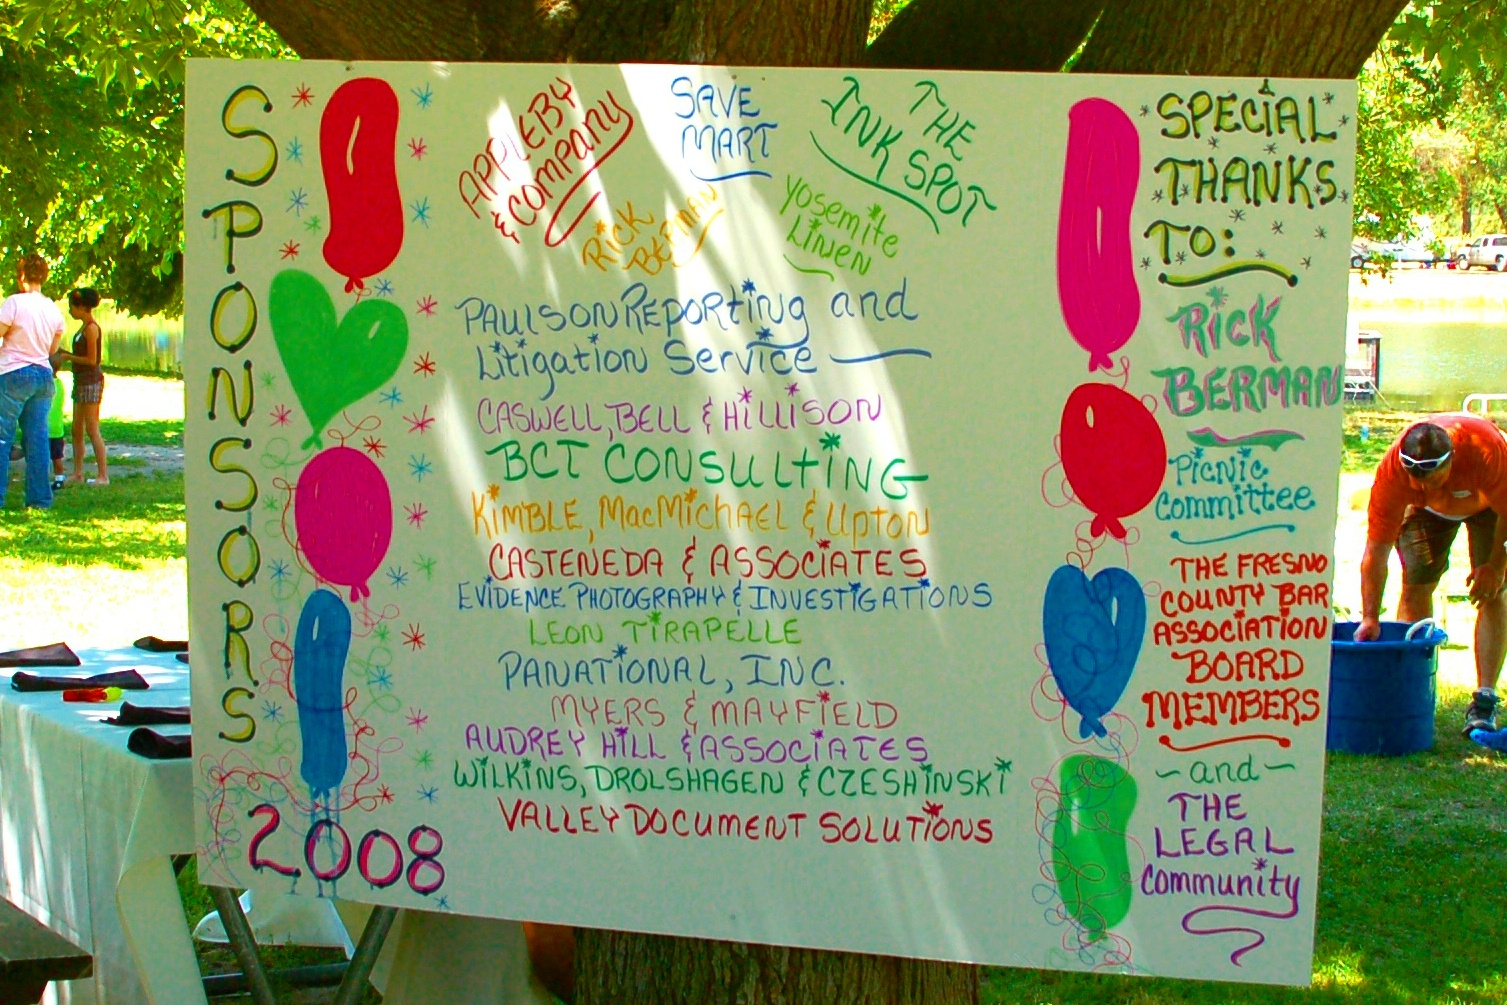 SPONSORS
2008
APPLEBY
& COMPANY
SAVE
MART
THE
INK SPOT
RICK
BERMAN
YOSEMITE
LINEN
PAULSON REPORTING and
LITIGATION SERVICE
CASWELL, BELL & HILLISON
BCT CONSULTING
KIMBLE, MacMICHAEL & UPTON
CASTENEDA & ASSOCIATES
EVIDENCE PHOTOGRAPHY & INVESTIGATIONS
LEON TIRAPELLE
PANATIONAL, INC.
MYERS & MAYFIELD
AUDREY HILL & ASSOCIATES
WILKINS, DROLSHAGEN & CZESHINSKI
VALLEY DOCUMENT SOLUTIONS
SPECIAL
THANKS
TO:
RICK
BERMAN
PICNIC
COMMITTEE
THE FRESNO
COUNTY BAR
ASSOCIATION
BOARD
MEMBERS
~ and ~
THE
LEGAL
COMMUNITY